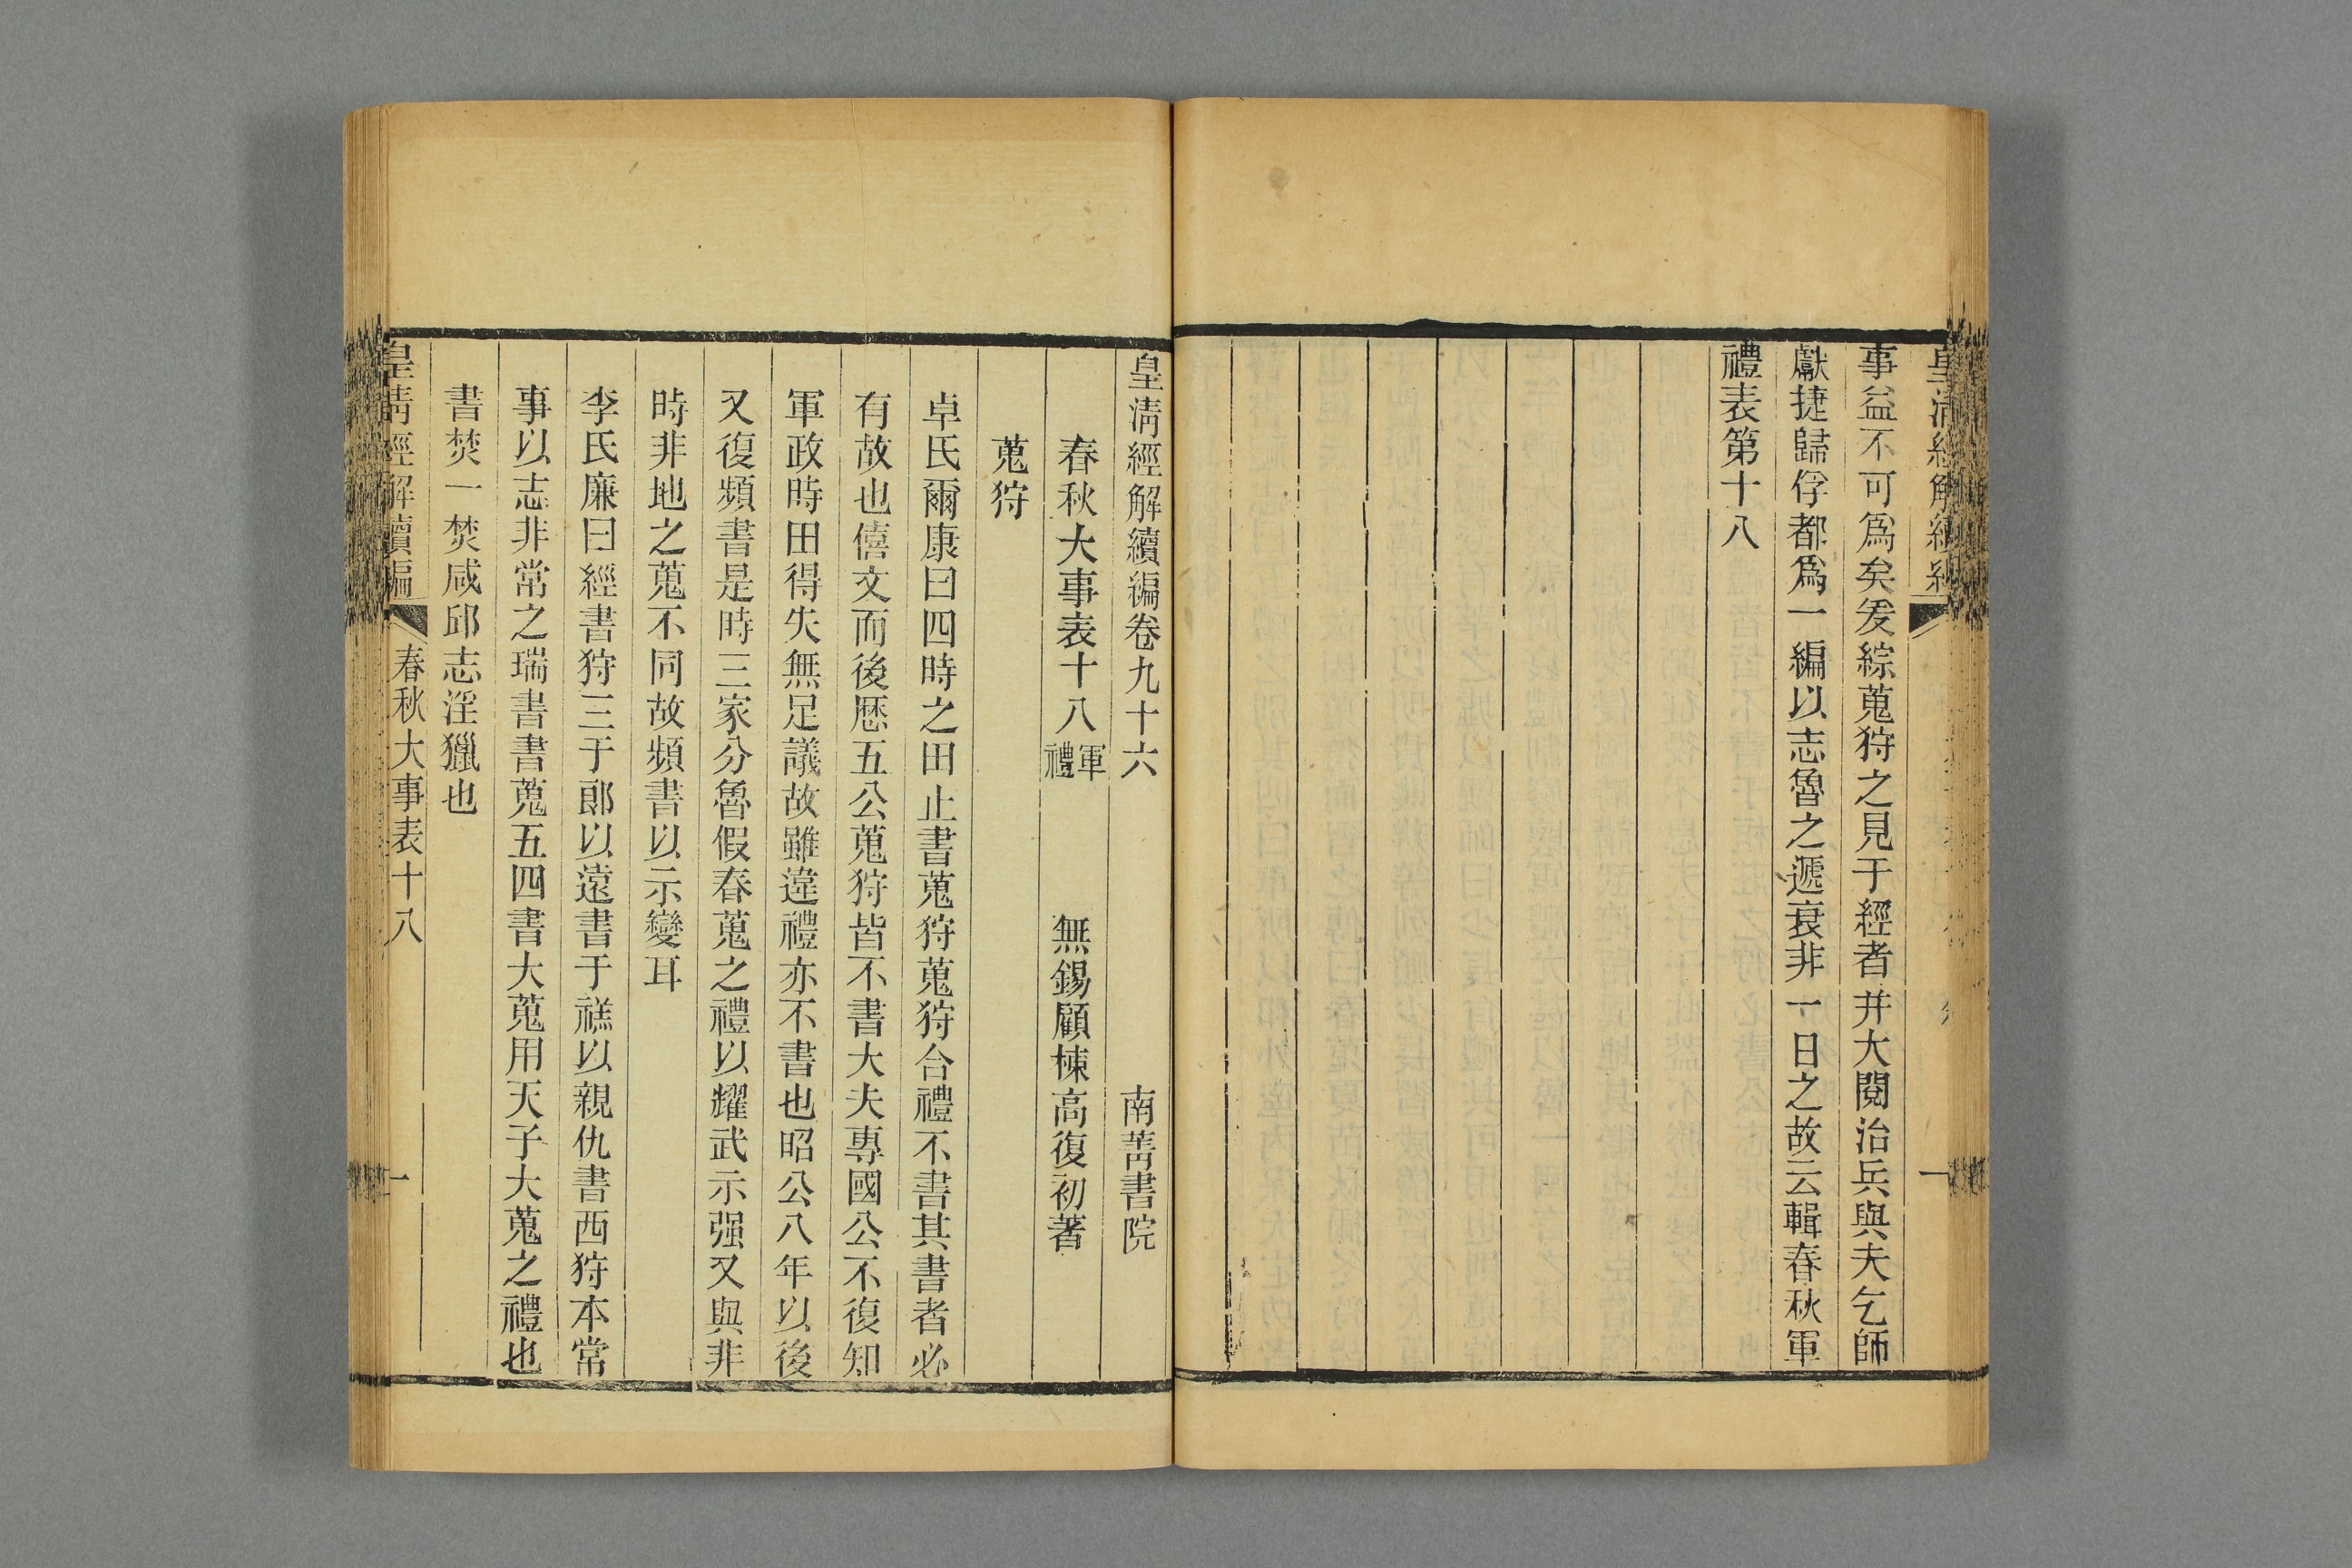 事益不可爲矣爰綜蒐狩之見于經者并大閱治兵與夫乞師
獻捷歸俘都爲一編以志魯之遞衰非一日之故云輯春秋軍
禮表第十八
皇清經解續編卷九十六 南菁書院
春秋大事表十八 軍禮 無錫顧棟高復初著
蒐狩
卓氏爾康曰四時之田止書蒐狩蒐狩合禮不書其書者必
有故也僖文而後歷五公蒐狩皆不書大夫專國公不復知
軍政時田得失無足議故雖違禮亦不書也昭公八年以後
又復頻書是時三家分魯假春蒐之禮以耀武示强又與非
時非地之蒐不同故頻書以示變耳
李氏廉曰經書狩三于郎以遠書于禚以親仇書西狩本常
事以志非常之瑞書書蒐五四書大蒐用天子大蒐之禮也
書焚一焚咸邱志淫獵也
皇清經解續編 春秋大事表十八 一